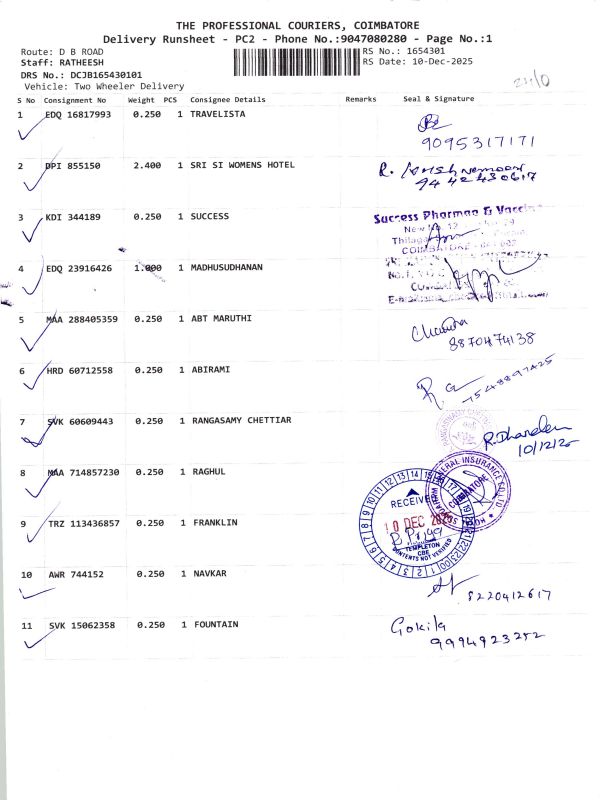 THE PROFESSIONAL COURIERS, COIMBATORE
Delivery Runsheet - PC2 - Phone No.:9047080280 - Page No.:1
Route: D B ROAD
RS No.: 1654301
Staff: RATHEESH
RS Date: 10-Dec-2025
DRS No.: DCJB165430101
Vehicle: Two Wheeler Delivery
S No Consignment No Weight PCS Consignee Details Remarks Seal & Signature
1 EDQ 16817993 0.250 1 TRAVELISTA
9095317171
2 DPI 855150 2.400 1 SRI SI WOMENS HOTEL
R.
9442430617
3 KDI 344189 0.250 1 SUCCESS
Success Pharmac & Vaccin
New No. 12
Thilaga
COIMBATORE
4 EDQ 23916426 1.000 1 MADHUSUDHANAN
5 MAA 288405359 0.250 1 ABT MARUTHI
8870474138
6 HRD 60712558 0.250 1 ABIRAMI
7548897425
7 SVK 60609443 0.250 1 RANGASAMY CHETTIAR
10/12/25
8 MAA 714857230 0.250 1 RAGHUL
GENERAL INSURANCE CO LTD
COIMBATORE
9 TRZ 113436857 0.250 1 FRANKLIN
RECEIVED
10 DEC 2025
TEMPLETON
CBE
CONTENTS NOT VERIFIED
10 AWR 744152 0.250 1 NAVKAR
8220412617
11 SVK 15062358 0.250 1 FOUNTAIN
Gokila
9994923252